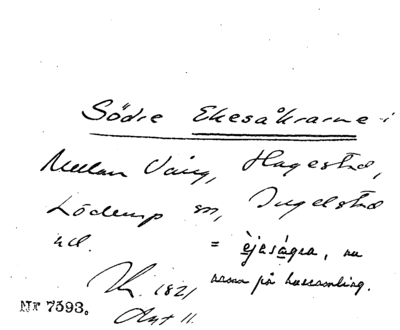 Södre Ekesåkrarne i
Mellan Vång, Hagestad,
Löderup sn, Ingelstad
hd. = èjeságra, nu
namn på hussamling.
1821
Akt 11.
Nr 7593.